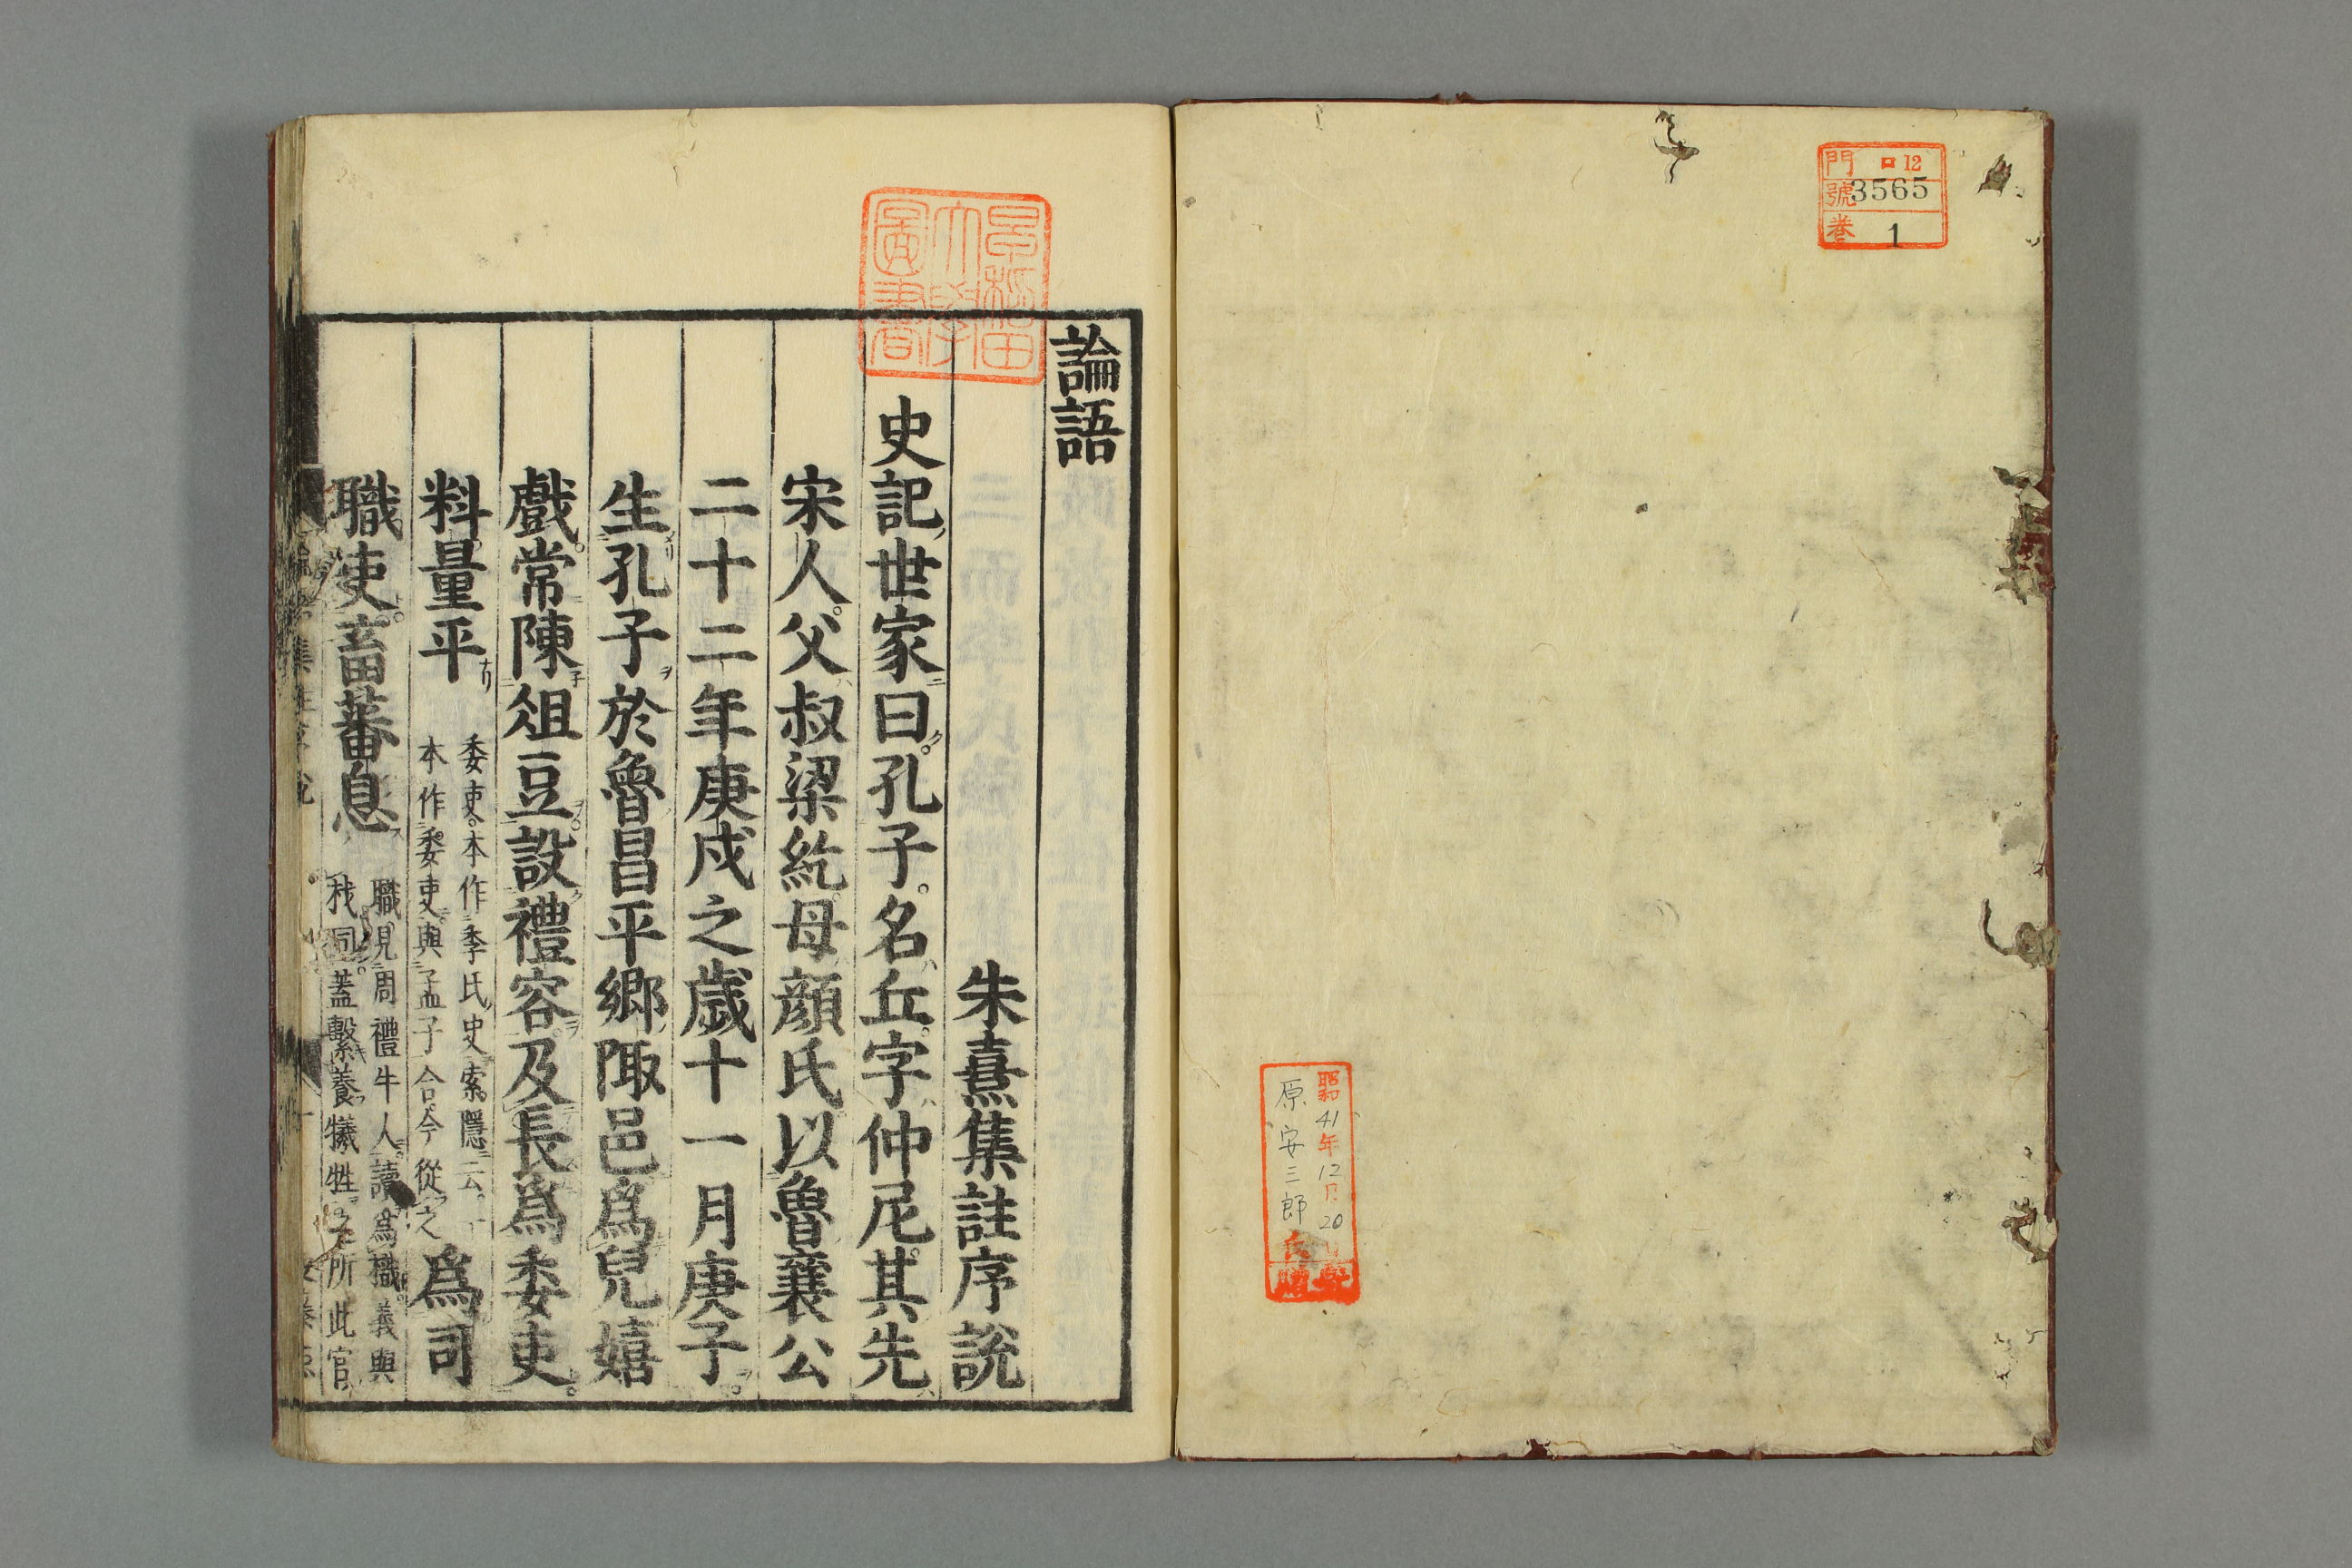 門 ロ12
號 3565
卷 1
昭和41年12月20日
原安三郎氏
寄贈
早稲田
大學
圖書
論語
朱熹集註序說
史記世家曰。孔子。名丘。字仲尼。其先
宋人。父叔梁紇。母顏氏。以魯襄公
二十二年庚戌之歲十一月庚子。
生孔子於魯昌平鄉陬邑。爲兒嬉
戲。常陳俎豆。設禮容。及長爲委吏。
料量平
委吏。本作季氏史。索隱云。一
本作委吏。與孟子合。今從之
爲司
職吏。畜蕃息
職見周禮牛人。讀爲樴。義與
杙同。蓋繫養犧牲之所。此官